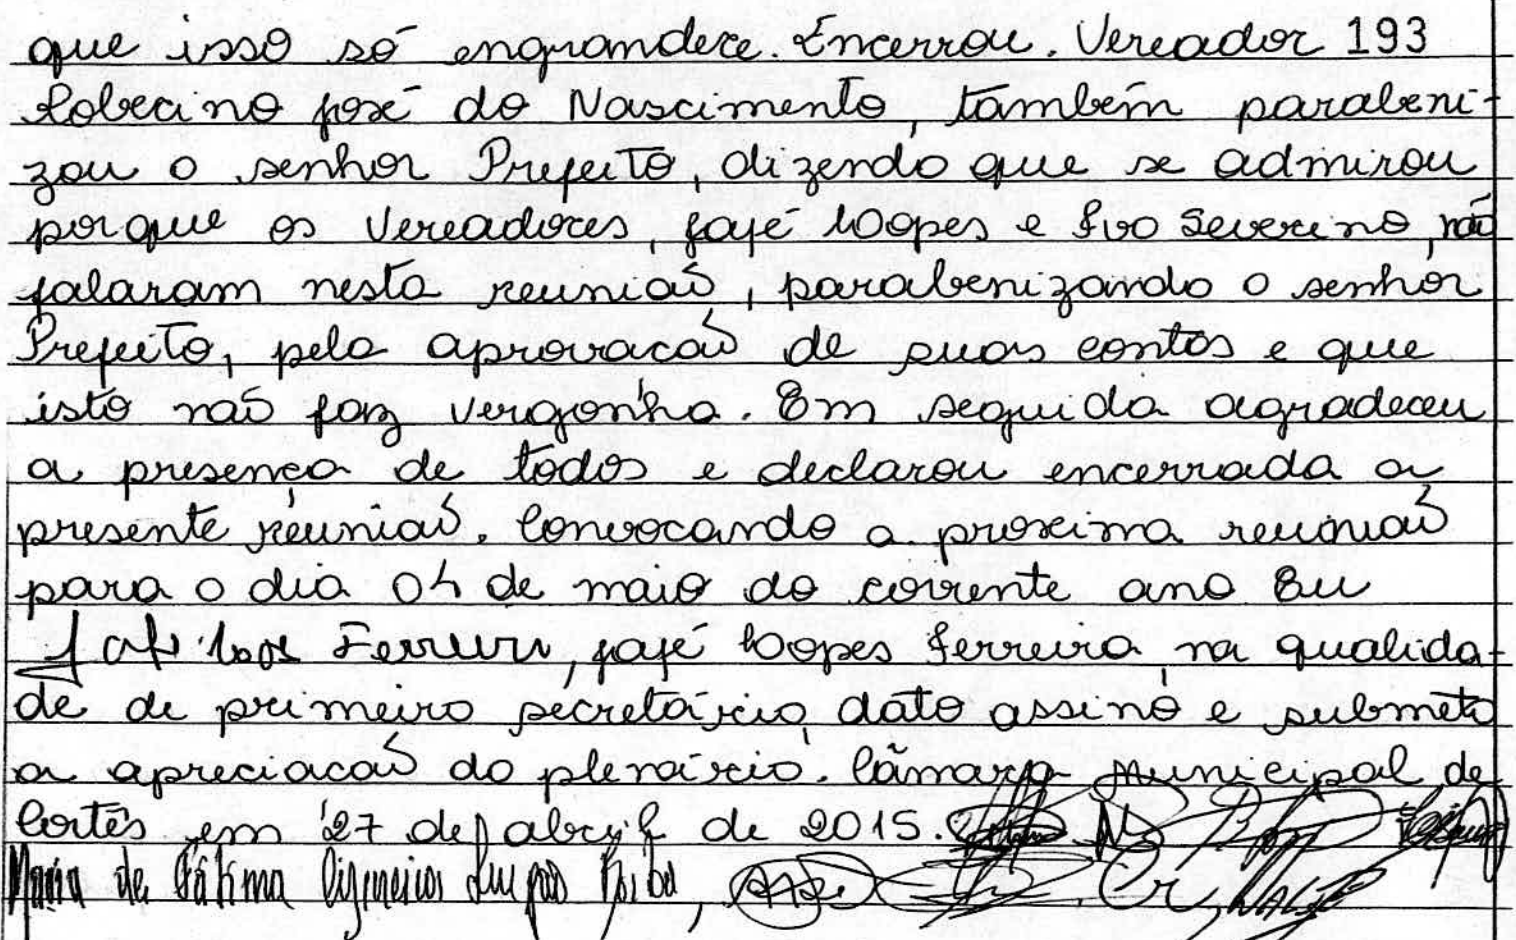 que isso só engrandece. Encerrou. Vereador 193
Robecino José do Nascimento, também parabeni-
zou o senhor Prefeito, dizendo que se admirou
porque os Vereadores, Jajé Loopes e Ivo Severino, não
falaram nesta reunião, parabenizando o senhor
Prefeito, pela aprovacaõ de suas contas e que
isto não faz vergonha. Em seguida agradeceu
a presença de todos e declarou encerrada a
presente reunião. Convocando a proxima reunião
para o dia 04 de maio do corrente ano Eu
Ferreira, Jajé Loopes Ferreira, na qualida-
de de primeiro secretário, dato assino e submeto
a apreciacaõ do plenário. Câmara Municipal de
Cortês em 27 de abril de 2015.
Maria de Fátima